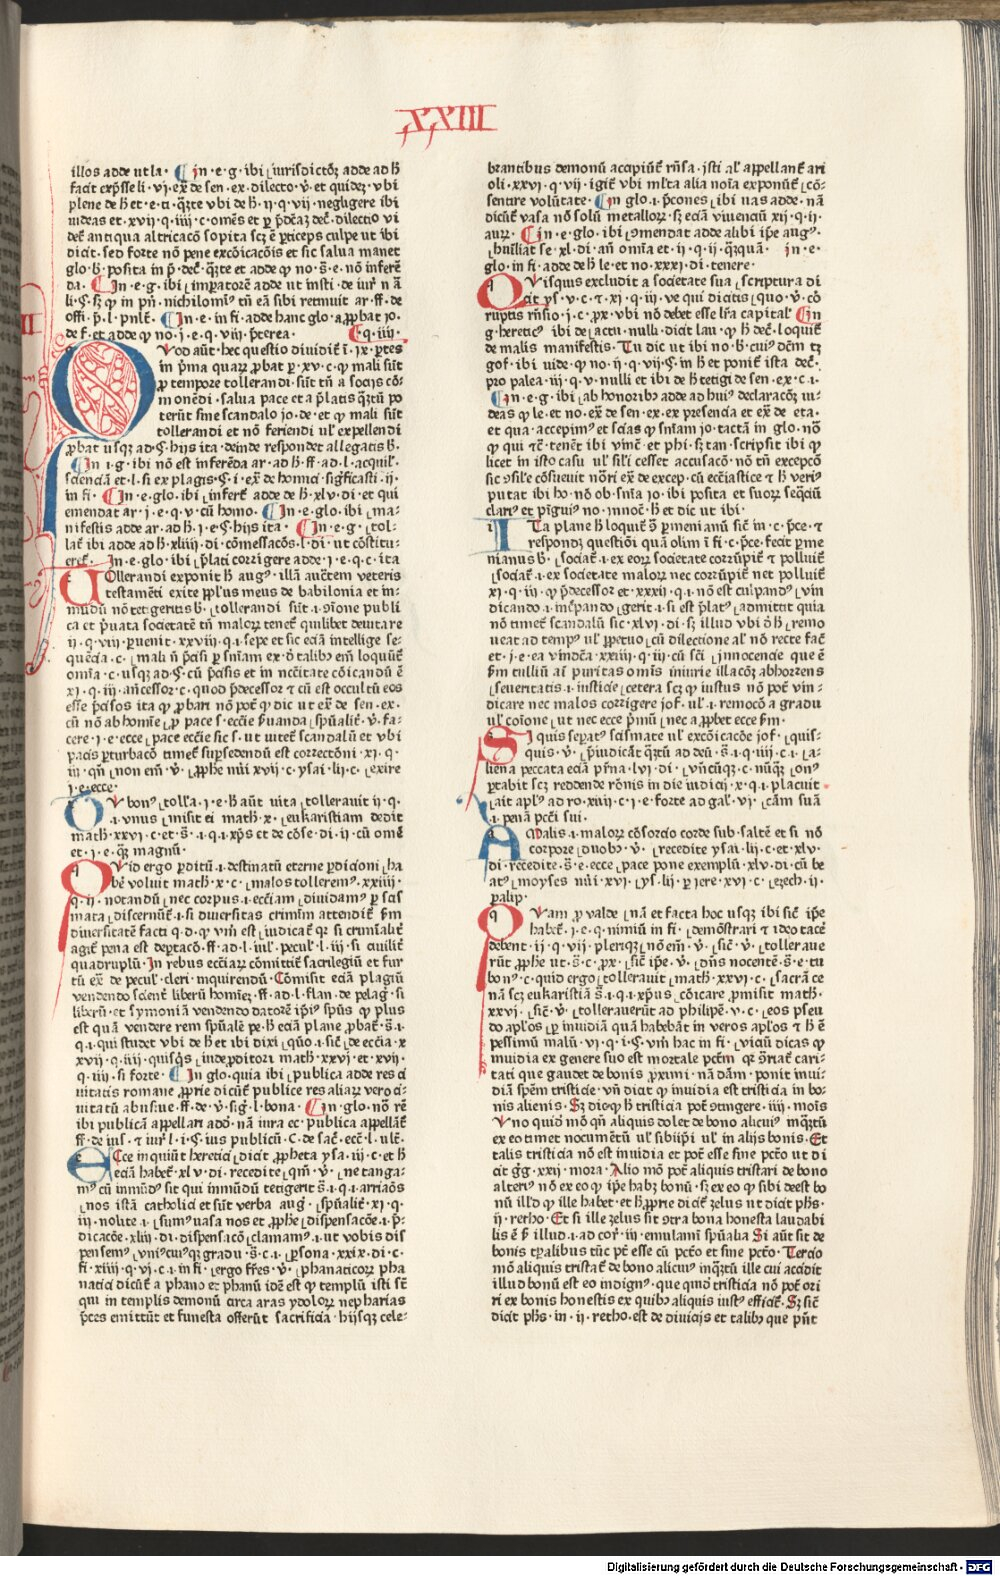 XXIII
illos adde ut la · In · e · g · ibi iurisdictōꝝ adde ad ħ
facit exp̄sse li · vi · ex̄ de sen · ex · dilecto · v̄ · et quidē · vbi
plene de ħ et · e · ti · q̄rte vbi de ħ · ii · q · vii · negligere ibi
videas et · xvii · q · iiii · c · omēs et
dec̄ antiqua altricacō sopita scȝ ē p̄ticeps culpe ut ibi
dicit · sed forte nō pene excōicacōis et sic salua manet
glo · ħ · posita in
da · In · e · g · ibi imparatorē adde ut insti · de iur̄ n ā
offi · p̄ · l · pn̄lt̄ · In · e · in fi · adde hanc glo · aꝓbat jo ·
de f · et adde ꝙ no · j · e · q · viii · p̄terea · q · iiii ·
Quod aūt hec questio diuidit̄ ī · ix · ꝑtes
in p̄ma quarꝝ ꝓbat ꝑ · xv · c · ꝙ mali sūt
ꝓ tempore tollerandi · sūt tn̄ a socijs cō
monēdi · salua pace et a p̄latis q̄ꝫtū po
terūt sine scandalo jo · de · et ꝙ mali sūt
tollerandi et nō feriendi ul' expellendi
ꝓbat usqꝫ ad · § · hijs ita · deinde respondet allegatis ħ ·
In · i · g · ibi nō est inferēda ar · ad ħ · ff · ad · l · acquil' ·
in fi · In · e · glo · ibi inferr̄ adde de ħ · xlv · di · et qui
emendat ar · j · e · q · v · cū homo · In · e · glo · ibi ma-
nifestis adde ar · ad ħ · j · e · § · hijs ita · In · e · g · tol-
lat̄ ibi adde ad ħ · xliiii · di · cōmessacōs · l · di · ut cōstitu-
erēt̄ · In · e · glo · ibi p̄lati corrigere adde · j · e · q · c · ita
Tollerandi exponit ħ augꝰ · illā auctem veteris
testamēti exite ppl'us meus de babilonia et in-
mūdū nō tetigeritis ħ · tollerandi sūt · i · ꝯione publi
ca et p̄uata societate tn̄ malorꝫ tenet̄ quilibet deuitare
ii · q · vii · ꝑuenit · xxviii · q · i · sepe et sic eciā intellige se-
quēcia · c · mali
xi · q · iii · an̄cessor · c · quod p̄decessor ⁊ cū est occultū eos
esse p̄cisos ita ꝙ ꝓbari nō pot̄ ꝙ dic ut ex̄ de sen · ex ·
cū nō ab homīe ꝓ pace s · eccīe ẜuanda spūalit̄ · v̄ · fa-
cere · i · e · ecce pace eccīe sic s · ut vitet̄ scandalū et vbi
pacis ꝑturbacō timet̄ suꝑsedendū est correctōni · xi · q ·
iii · qn̄ non em̄ · v̄ · ꝓphe nūi xvii · c · ysai · lii · c · exire
j · e · ecce ·
Qui bonꝰ toll'a · j · e · ħ aūt uita tollerauit ii · q ·
i · vnus misit ei math · x · eukaristiam dedit
math · xxvi · c · et s̄ · i · q · i · xp̄s et de cōse · di · ii · cū omē
et · i · e · q̄ꝫ magnū ·
Quid ergo ꝑditū · i · destinatū eterne ꝑdicioni ha
bē voluit math · x · c · malos tolleremꝰ · xxiiii ·
q · ii · notandū nec corpus · i · eccīam diuidamꝰ ꝑ scis
mata discernūt̄ · i · si diuersitas crimīm attendit̄ ẜm
diuersitatē facti q · d · ꝙ vm̄ est iudicat̄ qꝫ si crimīalit̄
agit̄ pena est deptacō · ff · ad · l · iul' · pecul' · l · iii · si ciuilit̄
quadruplū · In rebus eccīarꝫ cōmittit̄ sacrilegiū et fur
tū ex̄ · de pecul' · cleri · inquirendū · Comisit eciā plagiū
vendendo scient̄ liberū homīeꝫ · ff · ad · l · flan · de pelagi · si
liberū · et symoniā vendendo datorē ip̄iꝰ spūs ꝙ plus
est quā vendere rem spūalē ꝑ · ħ eciā plane ꝓbat̄ · s̄ · i ·
q · i · qui studet vbi de ħ et ibi dixi quō · i · sic̄ de eccīa · x
xvii · q · iiii · quisq̄s inde ꝓditori math · xxvi · et · xvii ·
q · iiii · si forte · In glo · quia ibi publica adde res ci
uitatis romane ꝓprie dicūt̄ publice res aliarꝫ vero ci-
uitatū abusiue · ff · de · v̄ · sig̃ · l · bona · In glo · nō rē
ibi publicā appellari adō · nā iura ec̄ publica appellāt̄
ff · de ius · ⁊ iur̄ · l · i · § · ius publicū · C · de sac̄ · ecc̄ · l · ult̄ ·
Ecce inquiūt heretici dicit ꝓpheta ysa · iii · c · et ħ
eciā habet̄ · xlv · di · recedite qm̄ · v̄ · ne tanga-
mꝰ cū inmūdꝰ sit qui inmūdū tetigerit s̄ · i · q · i · arriaōs
nos istā catholici et sūt verba augꝰ spūalit̄ · xi · q ·
iii · nolite · i · sumꝰ uasa nos et ꝓphe dispensacōe · i · p̄-
dicacōe · xliii · di · dispensacō clamamꝰ · i · ut vobis dis
pensemꝰ vnicuiqꝫ gradu · s̄ · c · i · ꝑsona · xxix · di · c ·
fi · xiiii · q · vi · c · i · in fi · ergo fr̄es · v̄ · phanaticorꝫ pha
natici dicūt̄ a phano et phanū idē est ꝙ templū isti sc̄
qui in templis demonū circa aras ydolorꝫ nepharias
p̄ces emittūt et funesta offerūt sacrificia · hijsqꝫ cele-
brantibus demonū accipiūt̄ rn̄sa · isti al' appellant̄ ari
oli · xxvi · q · vii · igit̄ vbi ml'ta alia noīa exponūt̄ cō-
sentire volūtate · In glo · i · p̄cones ibi uas adde · nā
dicūt̄ vasa nō solū metallorꝫ · sꝫ eciā viuenciū xii · q · ii ·
aurꝫ · In · e · glo · ibi ꝯmendat adde alibi ip̄e augꝰ
hūiliat se · xl · di · an̄ omīa et · ii · q · ii · q̄ꝫquā · in · e ·
glo · in fi · adde de ħ le · et no · xxxi · di · tenere ·
Quisquis excludit a societate sua scriptura di
cit ys · v · c · ⁊ xi · q · iii · ve qui dicitis quo · v̄ · cō
ruptis rn̄sio · j · c · ꝓx · vbi nō debet esse lr̄a capital' In
g · hereticꝰ ibi de iactu · nulli · dicit lau · ꝙ ħ dec̄ · loquit̄
de malis manifestis · Tu dic ut ibi no · ħ · cuiꝰ dem̄ tꝫ
gof · ibi uide · ꝙ no · ii · q · vii · § · in ħ et ponit̄ ista dec̄ ·
pro palea · iii · q · v · nulli et ibi de ħ tetigi de sen · ex · c · i ·
In · e · g · ibi ab honoribꝰ adde ad huiꝰ declaracōꝫ ui-
deas ꝙ le · et no · ex̄ de sen · ex · ex presencia et ex̄ de eta ·
et qua · accepimꝰ et scias ꝙ sn̄iam jo · tactā in glo · nō
ꝙ qui ⁊c̄ · tenet̄ ibi vincī · et phi · sꝫ tan · scripsit ibi ꝙ
licet in isto casu ul' sili'i cesset accusacō · nō tn̄ excepcō
putat ibi ho · nō ob · sn̄ia jo · ibi posita et suorꝫ seq̄ciū
clariꝰ et pīguiꝰ no · innoc̄ · ħ et dic ut ibi ·
Ita plane ħ loquit̄
respondꝫ questiōi quā olim ī fi · c · p̄ce · fecit ꝑme
nianus ħ · sociat̄ · i · ex eorꝫ societate corrūpit̄ ⁊ polluit̄
sociat̄ · i · ex societate malorꝫ nec corrūpit̄ nec polluit̄
xi · q · iii · ꝙ p̄decessor et · xxxii · q · i · nō est culpandꝰ vin
dicando · i · inc̄pando gerit · i · si est p̄latꝰ admittit quia
nō timet̄ scandalū sic · xlvi · di · sꝫ illud vbi
ueat ad tempꝰ ul' ꝑpetuo cū dilectione al' nō recte fac̄
et · j · e · ea vindc̄a · xxiiii · q · iii · cū sc̄i innocencie que ē
ẜm tulliū aī puritas omīs iniurie illacōꝫ abhorrens
seueritatis · i · iusticie cetera scꝫ ꝙ iustus nō pot̄ vin-
dicare nec malos corrigere jos · ul' · i · remocō a gradu
ul' coīone ut nec ecce p̄mū nec aꝓbet ecce ẜm ·
Si quis seꝑatꝰ scismate ul' excōicacōe jos · quis-
quis · v̄ · p̄iudicāt q̄ꝫtū ad deū · s̄ · i · q · iiii · c · i · a-
ꝑtabit scꝫ reddende rōnis in die iudicij · x · q · i · placuit
ait apl'ꝰ ad ro · xiiii · c · i · e · forte ad gal' · vi · cām suā
· i · penā pcc̄i sui ·
A Malis · i · malorꝫ cōsorcio corde sub · salte et si nō
corpore duobꝰ · v̄ · recedite ysai · lii · c · et · xlv ·
di · recedite · s̄ · e · ecce pace pone exemplū · xlv · di · cū be
atꝰ moyses nūi · xvi · ys · lii · ꝑ iere · xvi · c · ezech · ii ·
palip ·
Quam ꝓ valde nā et facta hoc usqꝫ ibi sic̄ ip̄e
habet̄ · j · e · q · nimiū in fi · demōstrari ⁊ ideo tacē
debent · ii · q · vii · plerūqꝫ nō em̄ · v̄ · sic̄ · v̄ · tolleraue
rūt ꝓphe ut · s̄ · c · ꝓx · sic̄ ip̄e · v̄ · dn̄s nocentē · s̄ · e · tu
bonꝰ · c · quid ergo tollerauit math · xxvi · c · sacrā ce
nā scꝫ eukaristiā s̄ · i · q · i · xp̄us cōicare ꝑmisit math ·
xxvi · sic̄ · v̄ · tollerauerūt ad philipē · v · c · eos pseu
do apl'os ꝑ inuidiā quā habebāt in veros apl'os ⁊ ħ ē
pessimū malū · vi · q · i · § · vn̄ hac in fi · viciū dicas ꝙ
inuidia ex genere suo est mortale pctm̄ qꝫ ꝯtrat̄ cari-
tati que gaudet de bonis ꝓximi · nā dām̄ · ponit inui-
diā spēm tristicie · vn̄ dicit ꝙ inuidia est tristicia in bo-
nis alienis · Sꝫ dico ꝙ ħ tristicia pot̄ ꝯtingere · iiii · mōis
Vno quidē mō qn̄ aliquis dolet de bono alicuiꝰ inq̄ꝫtū
ex eo timet nocumētū ul' sibiip̄i ul' in alijs bonis · Et
talis tristicia nō est inuidia et pot̄ esse sine pctō ut di
cit g̃g · xxii · mora · Alio mō pot̄ aliquis tristari de bono
alteriꝰ nō ex eo ꝙ ip̄e habꝫ bonū · sꝫ ex eo ꝙ sibi deest bo
nū ill'd ꝙ ille habet · et ħ ꝓprie dicit̄ zelus ut dicit phs̄ ·
ii · retho · Et si ille zelus sit ꝯtra bona honesta laudabi
lis ē ẜm illud · i · ad cor̄ · iii · emulamī spūalia Si aūt sit de
bonis tꝑalibus tūc pt̄ esse cū pctō et sine pctō · Tercio
mō aliquis tristat̄ de bono alicuiꝰ inq̄ꝫtū ille cui accidit
illud bonū est eo indignꝰ · que quidē tristicia nō pot̄ ori
ri ex bonis honestis ex quibꝰ aliquis iustꝰ efficit̄ · Sꝫ sic̄
dicit phs̄ · in · ii · retho · est de diuicijs et talibꝰ que pn̄t
Digitalisierung gefördert durch die Deutsche Forschungsgemeinschaft · DFG